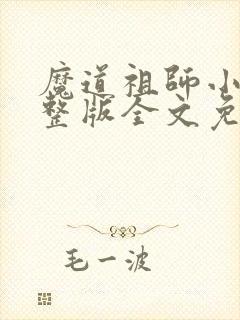 魔道祖師小
整版全文免
毛一波